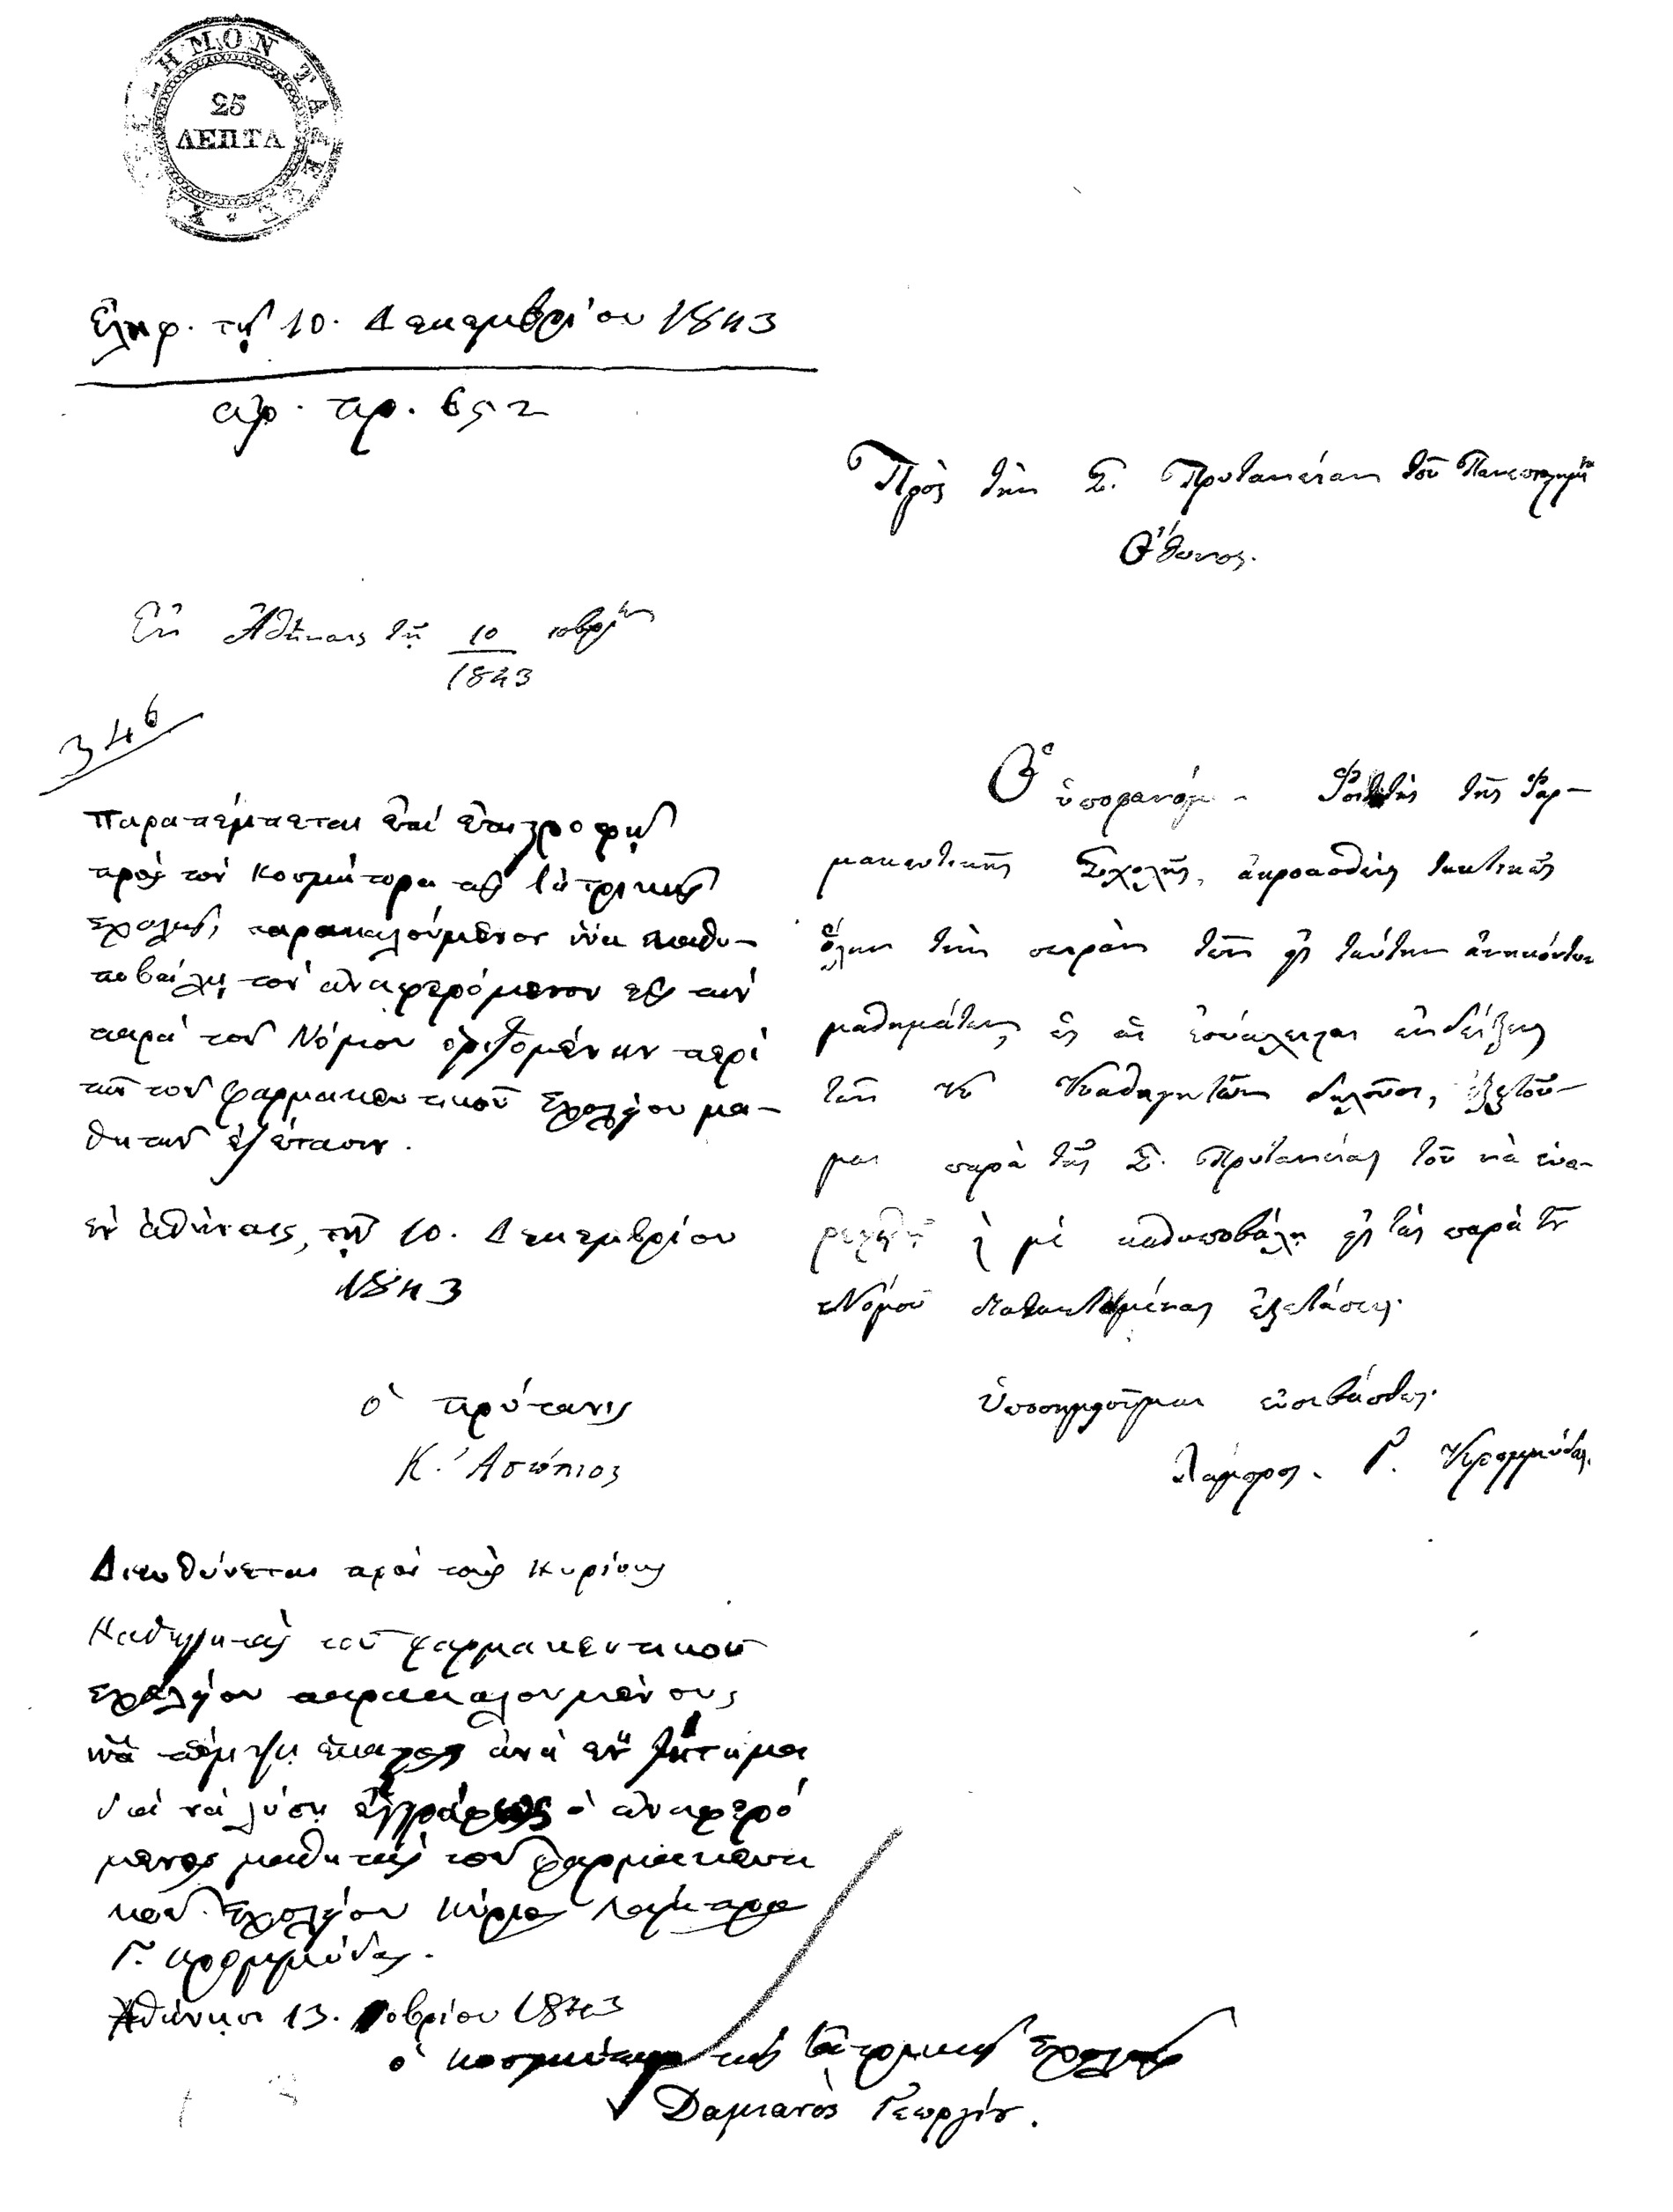 25
ΛΕΠΤΑ
Ἐλήφ. τῇ 10. Δεκεμβρίου 1843
ἀρ. πρ. 652
Πρὸς τὴν Σ. Πρυτανείαν τοῦ Πανεπιστημίου
Ὄθωνος.
Ἐν Ἀθήναις τῇ 10 10βρίου
1843
346
Παραπέμπεται ἐπὶ ἐπιστροφῇ
πρὸς τὸν Κοσμήτορα τῆς Ἰατρικῆς
Σχολῆς, παρακαλούμενον νὰ καθυ-
ποβάλῃ τὸν ἀναφερόμενον εἰς τὴν
παρὰ τοῦ Νόμου ὁριζομένην περὶ
τῶν τοῦ φαρμακευτικοῦ Σχολείου μα-
θητῶν ἐξέτασιν.
ἐν ἀθήναις, τῇ 10. Δεκεμβρίου
1843
ὁ πρύτανις
Κ. Ἀσώπιος
Ὁ ὑποφαινόμ. Φοιτητὴς τῆς Φαρ-
μακευτικῆς Σχολῆς, ἀκροασθεὶς τακτικῶς
ὅλην τὴν σειρὰν τῶν εἰς ταύτην ἀνηκόντων
μαθημάτων, ὡς αἱ ἐσώκλειστοι ἐνδείξεις
τῶν ΚΚ Καθηγητῶν δηλοῦσι, ἐξαιτοῦ-
μαι παρὰ τῆς Σ. Πρυτανείας τοῦ νὰ εὐα-
ρεστηθῇ νὰ μὲ καθυποβάλῃ εἰς τὰς παρὰ τοῦ
Νόμου διατεταγμένας ἐξετάσεις.
Ὑποσημειοῦμαι εὐσεβάστως.
Λάμπρος Γ. Κρομμύδας.
Διευθύνεται πρὸς τοὺς Κυρίους
Καθηγητὰς τοῦ φαρμακευτικοῦ
Σχολείου παρακαλουμένους
νὰ πέμψῃ ἕκαστος ἀνὰ ἓν ζήτημα
διὰ νὰ λύσῃ ἐγγράφως ὁ ἀναφερό
μενος μαθητὴς τοῦ φαρμακευτι
κοῦ Σχολείου Κύριος Λάμπρος
Γ. Κρομμύδας.
Ἀθήνησι 13. 10βρίου 1843
ὁ κοσμήτωρ τῆς Ἰατρικῆς Σχολῆς
Δαμιανὸς Γεωργίου.